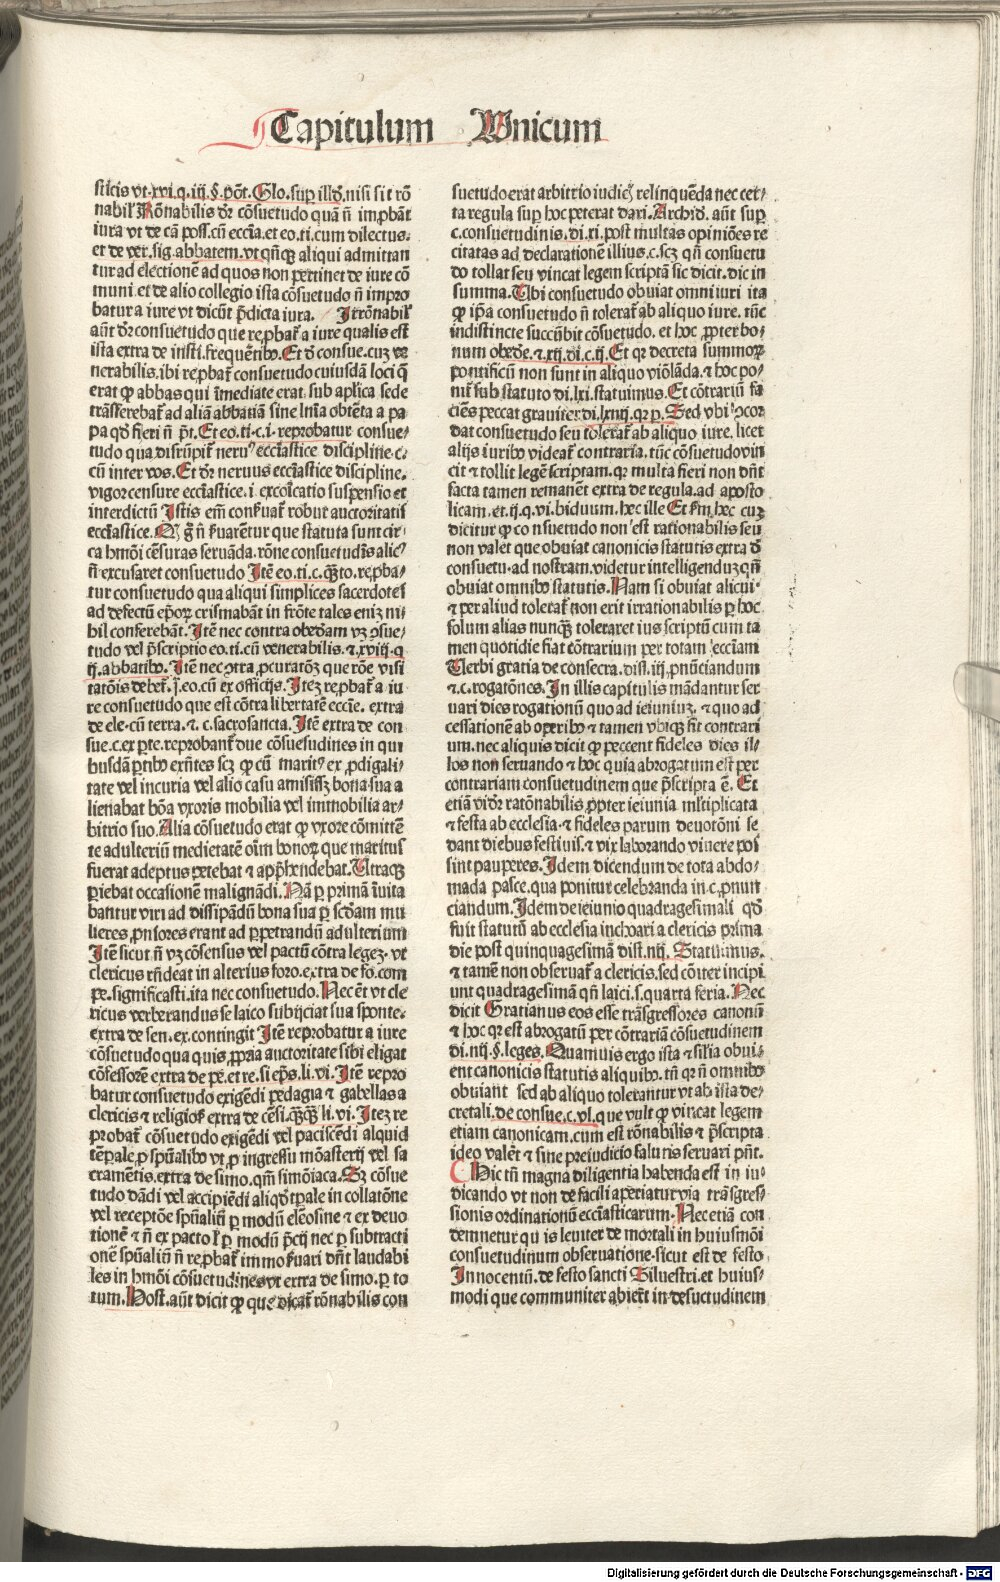 Capitulum Vnicum
sticis vt .xvi. q. iij. §. põt. Glo. sup illo. nisi sit rõ
nabil' Rõnabilis dr̄ cõsuetudo quã ñ improbãt
iura vt de cã poss. cũ eccĩa. et eo. ti. cum dilectus.
et de ver. sig. abbatem. vt qñcq aliqui admittan
tur ad electionẽ ad quos non pertinet de iure cõ
muni. et de alio collegio ista cõsuetudo ñ impro
batur a iure vt dicũt p̃dicta iura. Irrõnabil'
aũt dr̄ consuetudo que reprobat a iure qualis est
ista extra de insti. frequẽtibꝯ. Et õ consue. cuz ve
nerabilis. ibi reprobat consuetudo cuiusdã loci q
erat ꝙ abbas qui ĩmediate erat sub aplica sede
trãsferebat ad aliã abbatiã sine lr̃ia obtẽta a pa
pa qd fieri ñ põt. Et eo. ti. c. i. reprobatur consue-
tudo qua disrũpit neruꝰ ecclĩastice discipline. c.
cũ inter vos. Et dr̄ neruus ecclĩastice discipline.
vigor censure ecclĩastice. i. excõicatio suspensio et
interdictũ Istis em̃ conseruat robur auctoritatis
ecclĩastice. Q g̃ ñ seruarẽtur que statuta sunt cir-
ca hmõi cẽsuras seruãda. rõne consuetudĩs alicꝰ
ñ excusaret consuetudo Itẽ eo. ti. c. qzto. reproba-
tur consuetudo qua aliqui simplices sacerdotes
ad defectũ epõꝝ crismabãt in frõte tales eniz ni-
hil conferebãt. Itẽ nec contra obedĩam vz ꝯsue-
tudo vel p̃scriptio eo. ti. cũ venerabilis. ⁊ .xviij. q
ij. abbatibꝯ. Itẽ nec ꝯtra procuratõz que rõe visi
tatõis debet. j. eo. cũ ex officijs. Itez reprobat a iu
re consuetudo que est cõtra libertatẽ eccĩe. extra
de ele. cũ terra. ⁊ .c. sacrosancta. Itẽ extra de con
sue. c. ex p̃te. reprobant due cõsuesudines in qui
busdã ptibꝯ exñtes scz ꝙ cũ maritꝰ ex prodigali-
tate vel incuria vel alio casu amisissz bona sua a
lienabat bõa vxoris mobilia vel immobilia ar-
bitrio suo. Alia cõsuetudo erat ꝙ vxore cõmittẽ
te adulteriũ medietatẽ oĩm bonoꝝ que maritus
fuerat adeptus petebat ⁊ apprehendebat. Utraqꝫ
p̃iebat occasionẽ malignãdi. Nã p primã ĩuita
bantur viri ad dissipãdũ bona sua p scdam mu
lieres. pñiores erant ad perpetrandũ adulterium
Itẽ sicut ñ vz cõsensus vel pactũ cõtra legez. vt
clericus rñdeat in alterius foro. extra de fo. com
pe. significasti. ita nec consuetudo. Nec ẽt vt cle
ricus verberandus se laico subijciat sua sponte.
extra de sen. ex. contingit Itẽ reprobatur a iure
cõsuetudo qua quis propria auctoritate sibi eligat
cõfessorẽ extra de pe. et re. si eps. li. vi. Itẽ repro
batur consuetudo exigẽdi pedagia ⁊ gabellas a
clericis ⁊ religioss extra de cẽsi. qzqz li. vi. Itez re
probat cõsuetudo exigẽdi vel paciscẽdi aliquid
tẽpale. pro spũalibꝯ vt pro ingressu mõasterij vel sa
cramẽtis. extra de simo. qm̃ simõiaca. Sz cõsue
tudo dãdi vel accipiẽdi aliqd tp̃ale in collatõne
vel receptõe spũaliũ p modũ elẽosine ⁊ ex deuo
tionẽ ⁊ ñ ex pacto l' p modũ p̃cij nec p subtracti
onẽ spũaliũ ñ reprobat immo seruari dñt laudabi
les in hmõi cõsuetudines vt extra de simo. p to
tum. Host. aũt dicit ꝙ que dicat rõnabilis con
suetudo erat arbitrio iudicꝭ relinquẽda nec cer-
ta regula sup hoc peterat dari. Archid. aũt sup
c. consuetudinis. di. xi. post multas opiniões re
citatas ad declarationẽ illius. c. scz qñ consuetu
do tollat seu vincat legem scriptã sic dicit. dic in
summa. Ubi consuetudo obuiat omni iuri ita
ꝙ ipa consuetudo ñ tolerat ab aliquo iure. tũc
indistincte succũbit cõsuetudo. et hoc propter bo-
num obedĩe. ⁊ .xij. di. c. ij. Et qr decreta summoꝝ
pontificũ non sunt in aliquo violãda. ⁊ hoc po-
nit sub statuto di. lxi. statuimus. Et cõtrariũ fa
ciẽs peccat grauiter di. lxxiij. qr p. Sed vbi ꝯcor
dat consuetudo seu tolerat ab aliquo iure. licet
alijs iuribꝯ videat contraria. tũc cõsuetudo vin
cit ⁊ tollit legẽ scriptam. qr multa fieri non dñt
facta tamen remanẽt extra de regula. ad aposto
licam. et .ij. q. vi. biduum. hec ille Et sm hec cuz
dicitur ꝙ consuetudo non est rationabilis seu
non valet que obuiat canonicis statutis extra õ
consuetu. ad nostram. videtur intelligenduz qñ
obuiat omnibꝯ statutis. Nam si obuiat alicui.
⁊ per aliud tolerat non erit irrationabilis p hoc
solum alias nunqz toleraret ius scriptũ cum ta
men quotidie fiat cõtrarium per totam eccĩam
Uerbi gratia de consecra. dist. iij. pnũciandum
⁊ .c. rogatõnes. In illis capitulis mãdantur ser
uari dies rogationũ quo ad ieiuniuz. ⁊ quo ad
cessationẽ ab operibꝯ ⁊ tamen vbiqz fit contrari
um. nec aliquis dicit ꝙ peccent fideles dies il-
los non seruando ⁊ hoc quia abrogatum est per
contrariam consuetudinem que p̃scripta ẽ. Et
etiã vidr̄ ratõnabilis propter ieiunia mltiplicata
⁊ festa ab ecclesia. ⁊ fideles parum deuotõni se
dant diebus festiuis. ⁊ vix laborando viuere pos
sint pauperes. Idem dicendum de tota abdo-
mada pasce. qua ponitur celebranda in c. pnun
ciandum. Idem de ieiunio quadragesimali qd
fuit statutũ ab ecclesia inchoari a clericis prima
die post quinquagesimã dist. iiij. Statuimus.
⁊ tamẽ non obseruat a clericis. sed cõiter incipi
unt quadragesimã qñ laici. s. quarta feria. Nec
dicit Gratianus eos esse trãsgressores canonũ
⁊ hoc qr est abrogatũ per cõtrariã cõsuetudinem
di. iiij. §. leges. Quamuis ergo ista ⁊ silia obui-
ent canonicis statutis aliquibꝯ. tñ qr ñ omnibꝯ
obuiant sed ab aliquo tolerantur vt ab ista de-
cretali. de consue. c. vl. que vult ꝙ vincat legem
etiam canonicam. cum est rõnabilis ⁊ p̃scripta
ideo valẽt ⁊ sine preiudicio salutis seruari pñt.
Hic tñ magna diligentia habenda est in iu-
dicando vt non de facili aperiatur via trãsgres-
sionis ordinationũ ecclĩasticarum. Nec etiã con
demnetur quis leuiter de mortali in huiusmõi
consuetudinum obseruatione. sicut est de festo
Innocentũ. de festo sancti Siluestri. et huius-
modi que communiter abierũt in desuetudinem
Digitalisierung gefördert durch die Deutsche Forschungsgemeinschaft - DFG